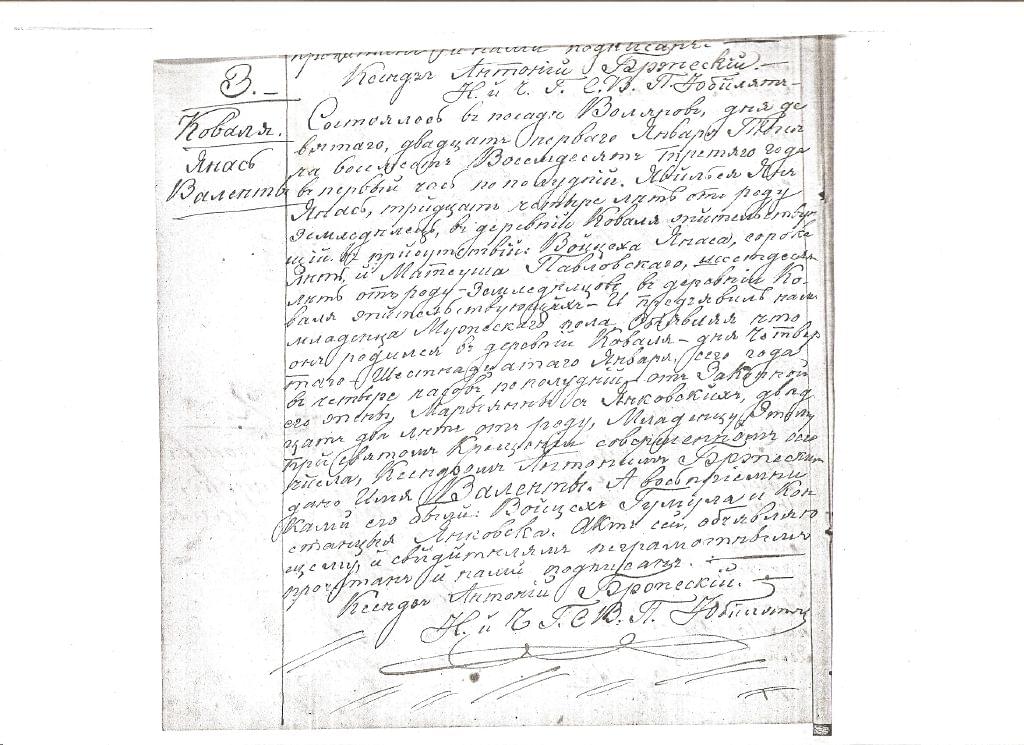 подписанъ.
Ксендзъ Антоній Бржескій.
Н. и Ч. Г. С. В. П. Юбилятъ
3.
Коваля.
Янасъ
Валенты
Состоялось въ посадѣ Воляновѣ, дня де
вятаго, двадцать перваго Января Тыся
ча восемсотъ Восемдесятъ третяго года
въ первый часъ по полудній. Явился Янъ
Янасъ, тридцать четыре лѣтъ отъ роду
Земледѣлецъ, въ деревнѣй Коваля жительствую
щій въ присутствій: Войцеха Янаса, сорокъ
лѣтъ, и Матеуша Павловскаго, шестдесятъ
лѣтъ отъ роду – Земледѣльцовъ въ деревнѣй Ко-
валя жительствующихъ – И предъявилъ намъ
младенца Мужескаго пола, объявляя что
онъ родился въ деревнѣй Коваля – дня Четвер
таго – Шестнадцатаго Января, сего года
въ четыре часовъ по полудній, отъ Законной
его жены, Марьянны съ Янковскихъ, двад
цать два лѣтъ отъ роду, Младенцу Этому
при Святомъ Крещеній совершенномъ сего
числа, Ксендзомъ Антонимъ Бржескимъ
дано Имя Валенты. А воспріемни
ками его были: Войцехъ Гумула и Кон
станцыя Янковска. Актъ сей, объявляю
щему и свидѣтелямъ неграмотнымъ
прочитанъ и нами подписанъ.
Ксендзъ Антоній Бржескій.
Н. и Ч. Г. С. В. П. Юбилятъ